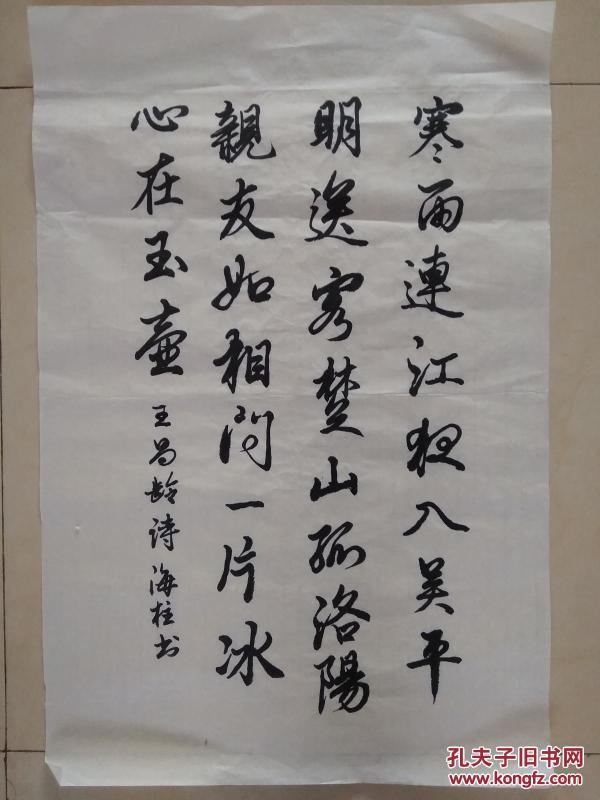 寒雨連江夜入吴平
明送客楚山孤洛陽
親友如相问一片冰
心在玉壺
王昌龄诗 海柱书
孔夫子旧书网
www.kongfz.com